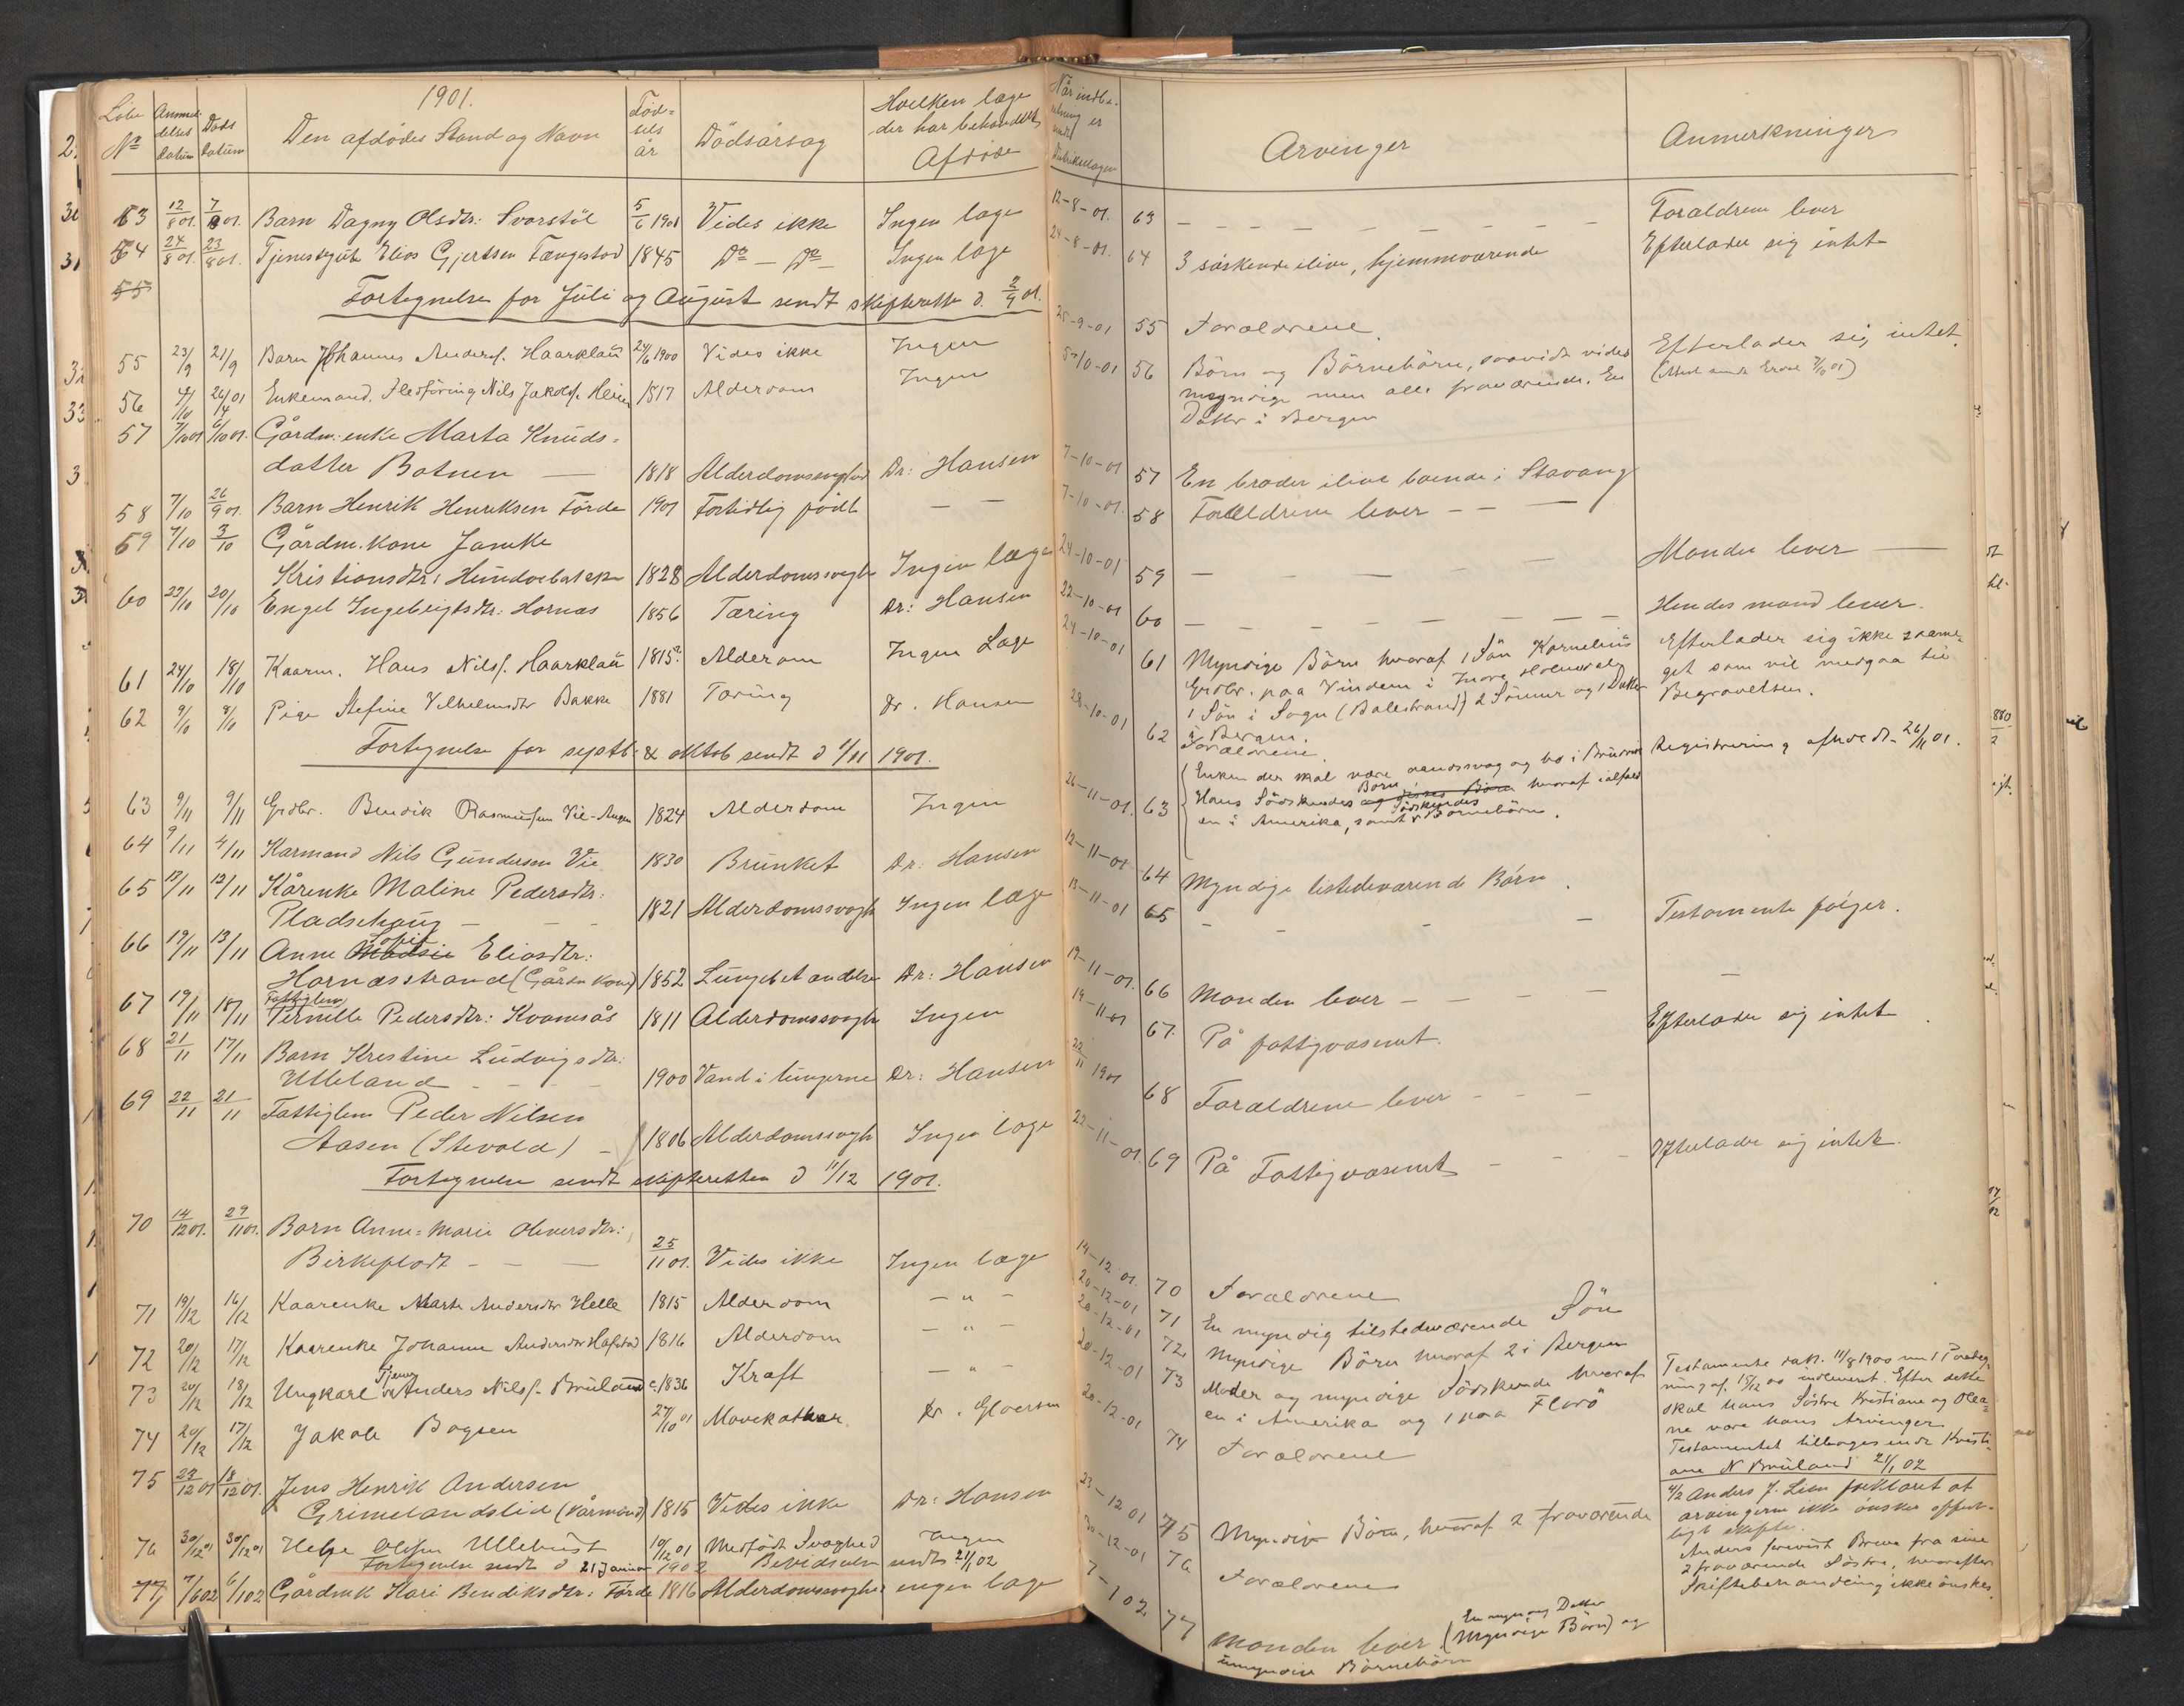 1901.
Löbe Nº
Anmeldelses Datum
Döds Datum
Den afdödes Stand og Navn
Födsels år
Dödsårsag
Hvilken læge der har behandlet Afdöde
Når indberetning er sendt
Arvinger
Anmerkninger
63 12/8 01. 7/8 01. Barn Dagny Olsdtr: Svarstöl 5/6 1901 Vides ikke Ingen læge 12-8-01. 63 Forældrene lever
64 24/8 01. 23/8 01. Tjenestegut Elias Gjertsen Fængestad 1845 Do — Do Ingen læge 24-8-01. 64 3 söskende ilive, hjemmværende Efterlader sig intet
55
Fortegnelse for Juli og August sendt skifteretten d. 2/9 01.
55 23/9 21/9 Barn Johannes Andersf. Haarklau 24/6 1900 Vides ikke Ingen 25-9-01 55 Forældrene Efterlader sig intet.
56 4/10 26/4 01 Enkemand. Nils Jakobsf. 1817 Alderdom Ingen 56 Börn og Börnebörn, saavidt vides
myndige men alle fraværende. En
Datter i Bergen
57 7/10 01 6/10 01. Gårdm: enke Marta Knuds=
datter Botnen — 1818 Alderdomssvaghed Dr: Hansen 7-10-01 57 En broder ilive boende i Stavang
58 7/10 26/9 01. Barn Henrik Henriksen Förde 1901 Fortidlig födt — 7-10-01. 58 Forældrene lever
59 7/10 3/10 Gårdm. Kone
Kristiansdtr: 1828 Alderdomssvaghed Ingen læge 24-10-01 59 Manden lever
60 22/10 20/10 Engel Ingebrigtsdtr: Hornæs 1856 Tæring Dr: Hansen 22-10-01 60 Hendes mand lever.
61 24/10 18/10 Kaarm. Hans Nilsf. Haarklau 1815? Alderdom Ingen Læge 24-10-01 61 Myndige Börn hvoraf 1 Sön Kornelius
Grdbr. paa Vindem i Indre Holmedal,
1 Sön i Sogn (Balestrand) 2 Sönner og 1 Datter
i Bergen.
Efterlader sig ikke saame=
get som vil medgaa til
Begravelsen.
62 Pige Stefine Vilhelmsdtr Bakke 1881 Tæring Dr. Hansen 28-10-01 62 Forældrene.
Fortegnelse for septb. & oktob sendt d 1/11 1901.
63 9/11 9/11 Grdbr. Bendik Rasmusen Vie-Augen 1824 Alderdom Ingen 26-11-01. 63 Enken der skal være aandssvag og bo i
Hans Södskendes Börn og disses Börn hvoraf ialfald
en i Amerika, samt Södskendes Börnebörn.
Registrering afholdt 26/11 01.
64 9/11 4/11 Karmand Nils Gundersen Vie 1830 Brunket Dr: Hansen 12-11-01 64 Myndige tilstedeværende Börn.
65 13/11 12/11 Kårenke Maline Pedersdtr:
Pladsehaug — 1821 Alderdomssvaghed Ingen læge 13-11-01 65 Testamente fölger.
66 19/11 13/11 Anne Sofie Eliasdtr:
Hornæsstrand (Gårdm kone) 1852 Lungebetændelse Dr: Hansen 19-11-01. 66 Manden lever
67 19/11 18/11 Fattiglem
Pernille Pedersdtr: Kvamsås 1811 Alderdomssvaghed Ingen 19-11-01 67. På fattigvæsenet. Efterlader sig intet.
68 21/11 17/11 Barn Kristine Ludvigsdtr:
Ulleland 1900 Vand i lungerne Dr: Hansen 22/11 1901 68 Forældrene lever
69 22/11 21/11 Fattiglem Peder Nilsen
Aasen (Stevold) 1806 Alderdomssvaghed Ingen læge 22-11-01. 69 På Fattigvæsenet Efterlader sig intet.
Fortegnelse sendt skifteretten d 11/12 1901.
70 14/12 01. 29/11 01. Barn Anne=Marie Oliversdtr:
Birkeflodt 25/11 01. Vides ikke Ingen læge 14-12 01. 70 Forældrene
71 19/12 16/12 Kaarenke Marte Andersdtr Helle 1815 Alderdom — " — 20-12-01 71 En myndig tilstedeværende Sön
72 20/12 17/12 Kaarenke Johanne Andersdtr Hafstad 1816 Alderdom — " — 20-12-01 72. Myndige Börn hvoraf 2 i Bergen
73 20/12 18/12 Ungkarl Tjener Anders Nilsf. Bruland c. 1836 Kræft — " — 20-12-01 73 Moder og myndige Södskende hvoraf
en i Amerika og 1 paa Florö
Testamente dat. 11/8 1900
15/12 00 indleveret. Efter dette
skal hans Söstre Kristiane og Olea=
ne være hans Arvinger
Testamentet tilbagesendt Kristi=
ane N Bruland 21/1 02
74 20/12 17/12 Jakob Bogsen 27/10 01 Mavekatarr. Dr. Gloersen 20-12-01 74 Forældrene
75 23/12 01 18/12 01. Jens Henrik Andersen
Grimelandslid (Kårmand) 1815 Vides ikke Dr: Hansen 23-12 01 75 Myndige Börn, hvoraf 2 fraværende
4/2 Anders J. Lien forklaret at
arvingerne ikke önsker offent=
ligt skifte.
Anders forevist Breve fra sine
2 fraværende Söstre, hvorefter
Skiftebehandling ikke önskes.
76 30/12 01 30/12 01 Helge Olsen Ullebust 10/12 01 Medfödt Svaghed Ingen 30-12-01 76 Forældrene
Fortegnelse sendt d 21 Januar 1902 sendt 21/1 02
77 7/1 02 6/1 02 Gårdmk Kari Bendiksdtr: Förde 1816 Alderdomssvaghed ingen læge 7-1 02. 77 Manden lever. (En myndig Datter
Myndige Börn) og
umyndige Börnebörn